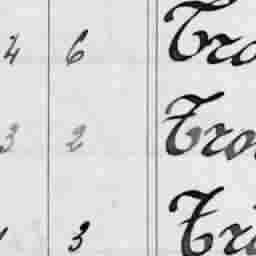 4 6 Tro
3 2 Tro
3 Tri